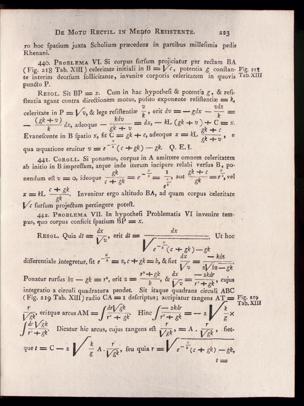 DE MOTU RECTIL. IN MEDIO RESISTENTE. 223
ro hoc spatium juxta Scholium præcedens in partibus millesimis pedis
Rhenani.
440. PROBLEMA VI. Si corpus sursum projiciatur per rectam BA
(Fig. 218 Tab. XIII) celeritate initiali in B = √c, potentia g constan-
Fig. 218
Tab. XIII
te interim deorsum sollicitatum, invenire corporis celeritatem in quovis
puncto P.
RESOL. Sit BP = x. Cum in hac hypothesi & potentia g, & resi-
stentia agant contra directionem motus, posito exponente resistentiæ = k,
celeritate in P = √v, & lege resistentiæ v/k, erit dv = — gdx — vdx/k =
— (gk + v) dx/k, adeoque — kdv/(gk + v) = dx, — kl. (gk + v) + C = x.
Evanescente in B spatio x, fit C = gk + c, adeoque x = kl. (gk + c)/(gk + v), e
qua æquatione eruitur v = e^(-x/k) (c + gk) — gk. Q. E. I.
441. COROLL. Si ponamus, corpus in A amittere omnem celeritatem
ab initio in B impressam, atque inde iterum incipere relabi versus B, po-
nendum est v = 0, ideoque gk/(c + gk) = e^(-x/k) = 1/e^(x/k), aut (c + gk)/gk = e^(x/k), vel
x = kl. (c + gk)/gk. Invenitur ergo altitudo BA, ad quam corpus celeritate
√c sursum projectum pertingere potest.
442. PROBLEMA VII. In hypothesi Problematis VI invenire tem-
pus, quo corpus conficit spatium BP = x.
RESOL. Quia dt = dx/√v, erit dt = dx/√(e^(-x/k) (c + gk) — gk). Ut hoc
differentiale integretur, fit e^(-x/k) = z, c + gk = b, & fiet dx/√v = — kdz/(z√(bz — gk)).
Ponatur rursus bz — gk = r², erit z = (r² + gk)/b, & dx/√v = — 2kdr/(r² + gk), cujus
integratio a circuli quadratura pendet. Sit itaque quadrans circuli ABC
(Fig. 219 Tab. XIII) radio CA = 1 descriptus; accipiatur tangens AT =
Fig. 219
Tab. XIII
r/√gk, eritque arcus AM = ∫ dr√gk/(r² + gk). Hinc ∫ — 2kdr/(r² + gk) = — 2 √(k/g) ×
∫ dr√gk/(r² + gk). Dicatur hic arcus, cujus tangens est r/√gk, = A . r/√gk, fiet-
que t = C — 2 √(k/g) A . r/√gk, seu quia r = √(e^(-x/k) (c + gk) — gk),
t =